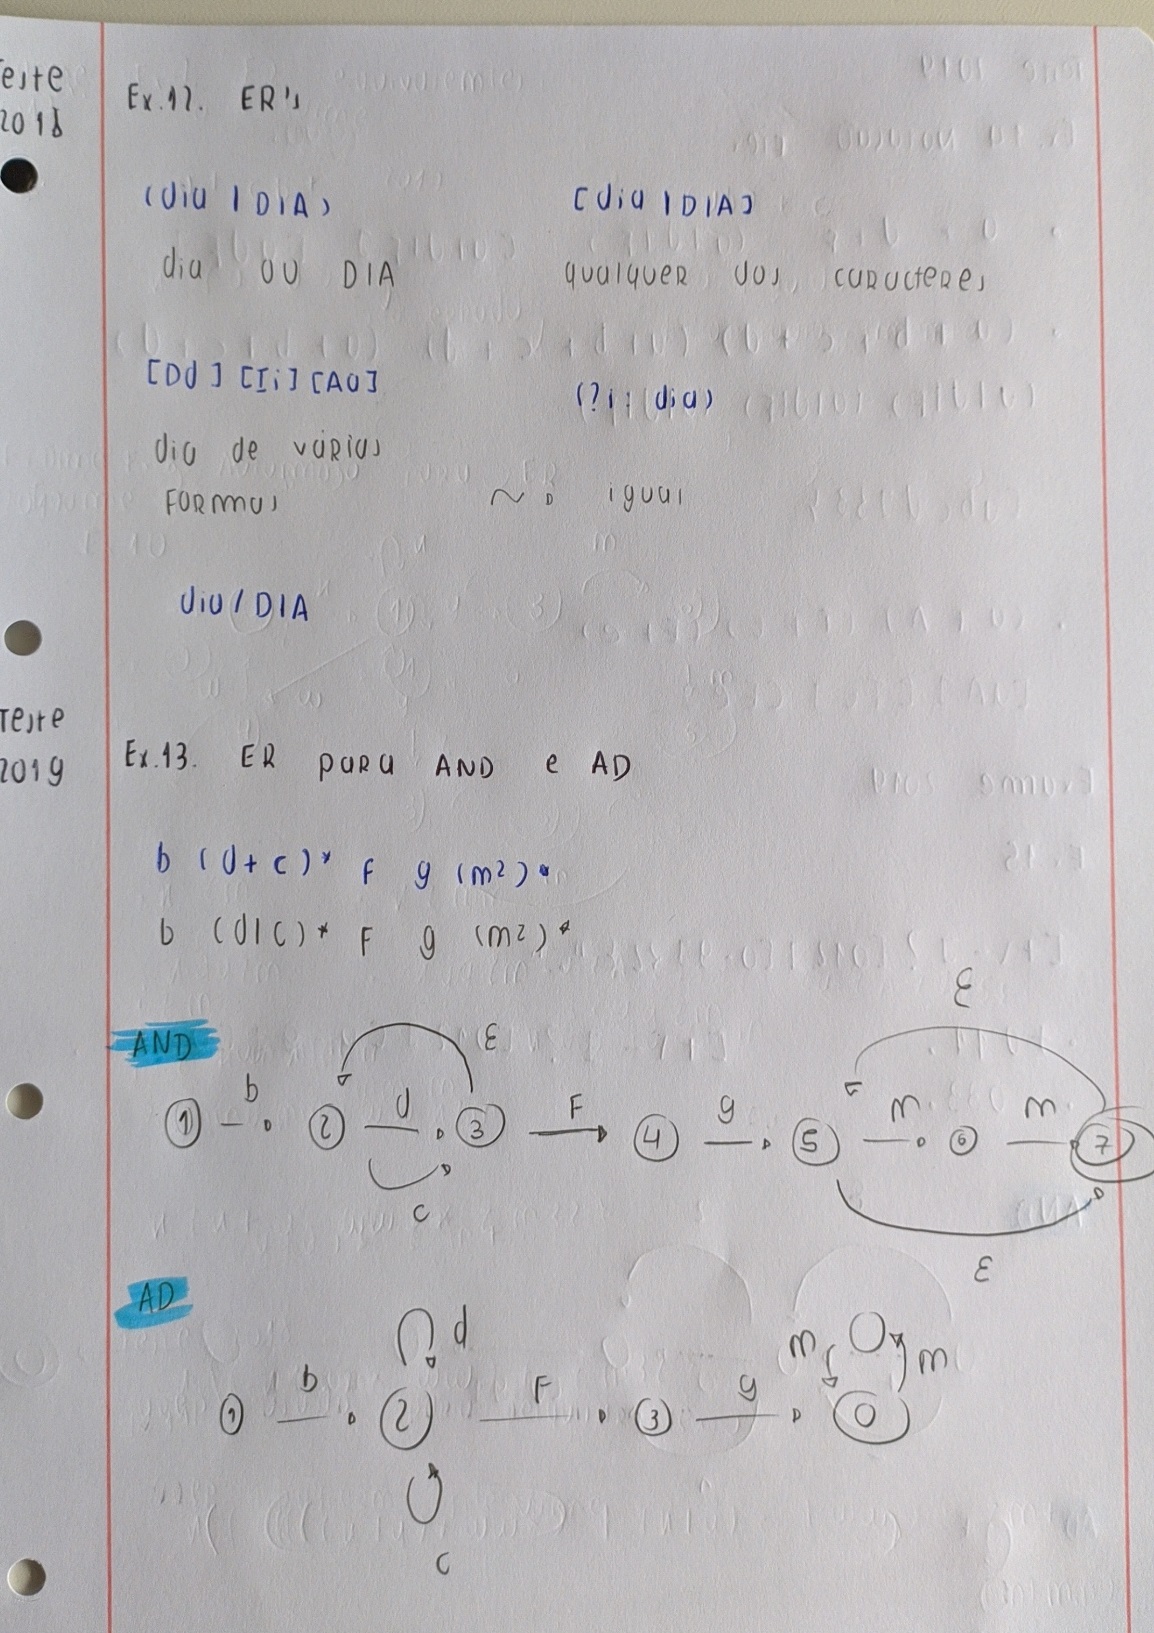 Teste
2018
Ex.12. ER's
(dia | DIA)
[dia | DIA]
dia OU DIA
qualquer dos caracteres
[Dd] [Ii] [Aa]
(?i:(dia)
dia de várias
formas
~ igual
dia/DIA
Teste
2019
Ex.13. ER para AND e AD
b (d+c)* F g (m²)*
b (d|c)* F g (m²)*
AND
ε
ε
b
d
F
g
m
m
1
2
3
4
5
6
7
c
ε
AD
d
m
m
b
F
g
1
2
3
0
c